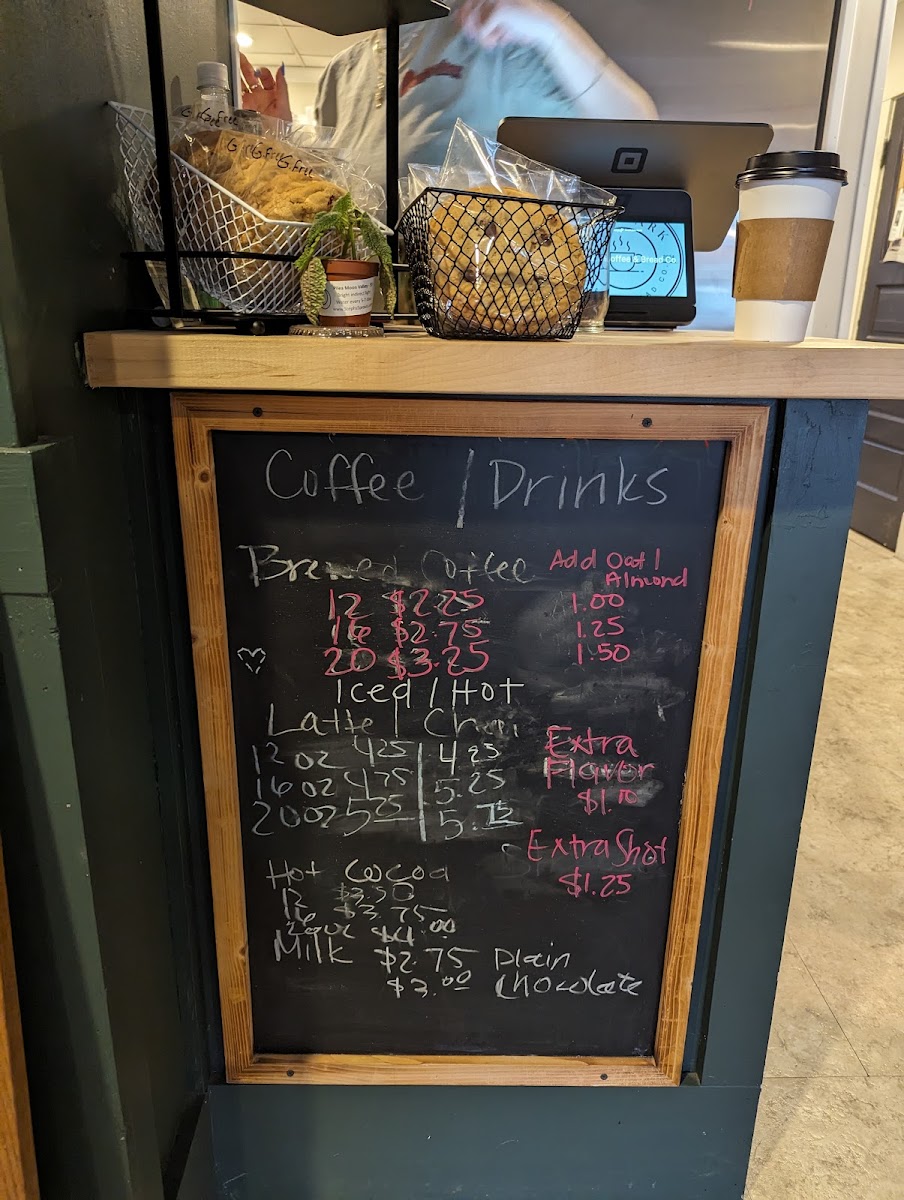 G.Free G.Free G.Free
RK
Coffee & Bread Co
Coffee / Drinks
Brewed Coffee
12 $2.25
16 $2.75
20 $3.25
Add Oat / Almond
1.00
1.25
1.50
Iced / Hot
Latte / Chai
12 oz 4.25 | 4.25
16 oz 4.75 | 5.25
20 oz 5.25 | 5.75
Extra
Flavor
$1.00
Extra Shot
$1.25
Hot Cocoa
12 $3.50
16 $3.75
$4.00
Milk $2.75 Plain
$3.00 Chocolate